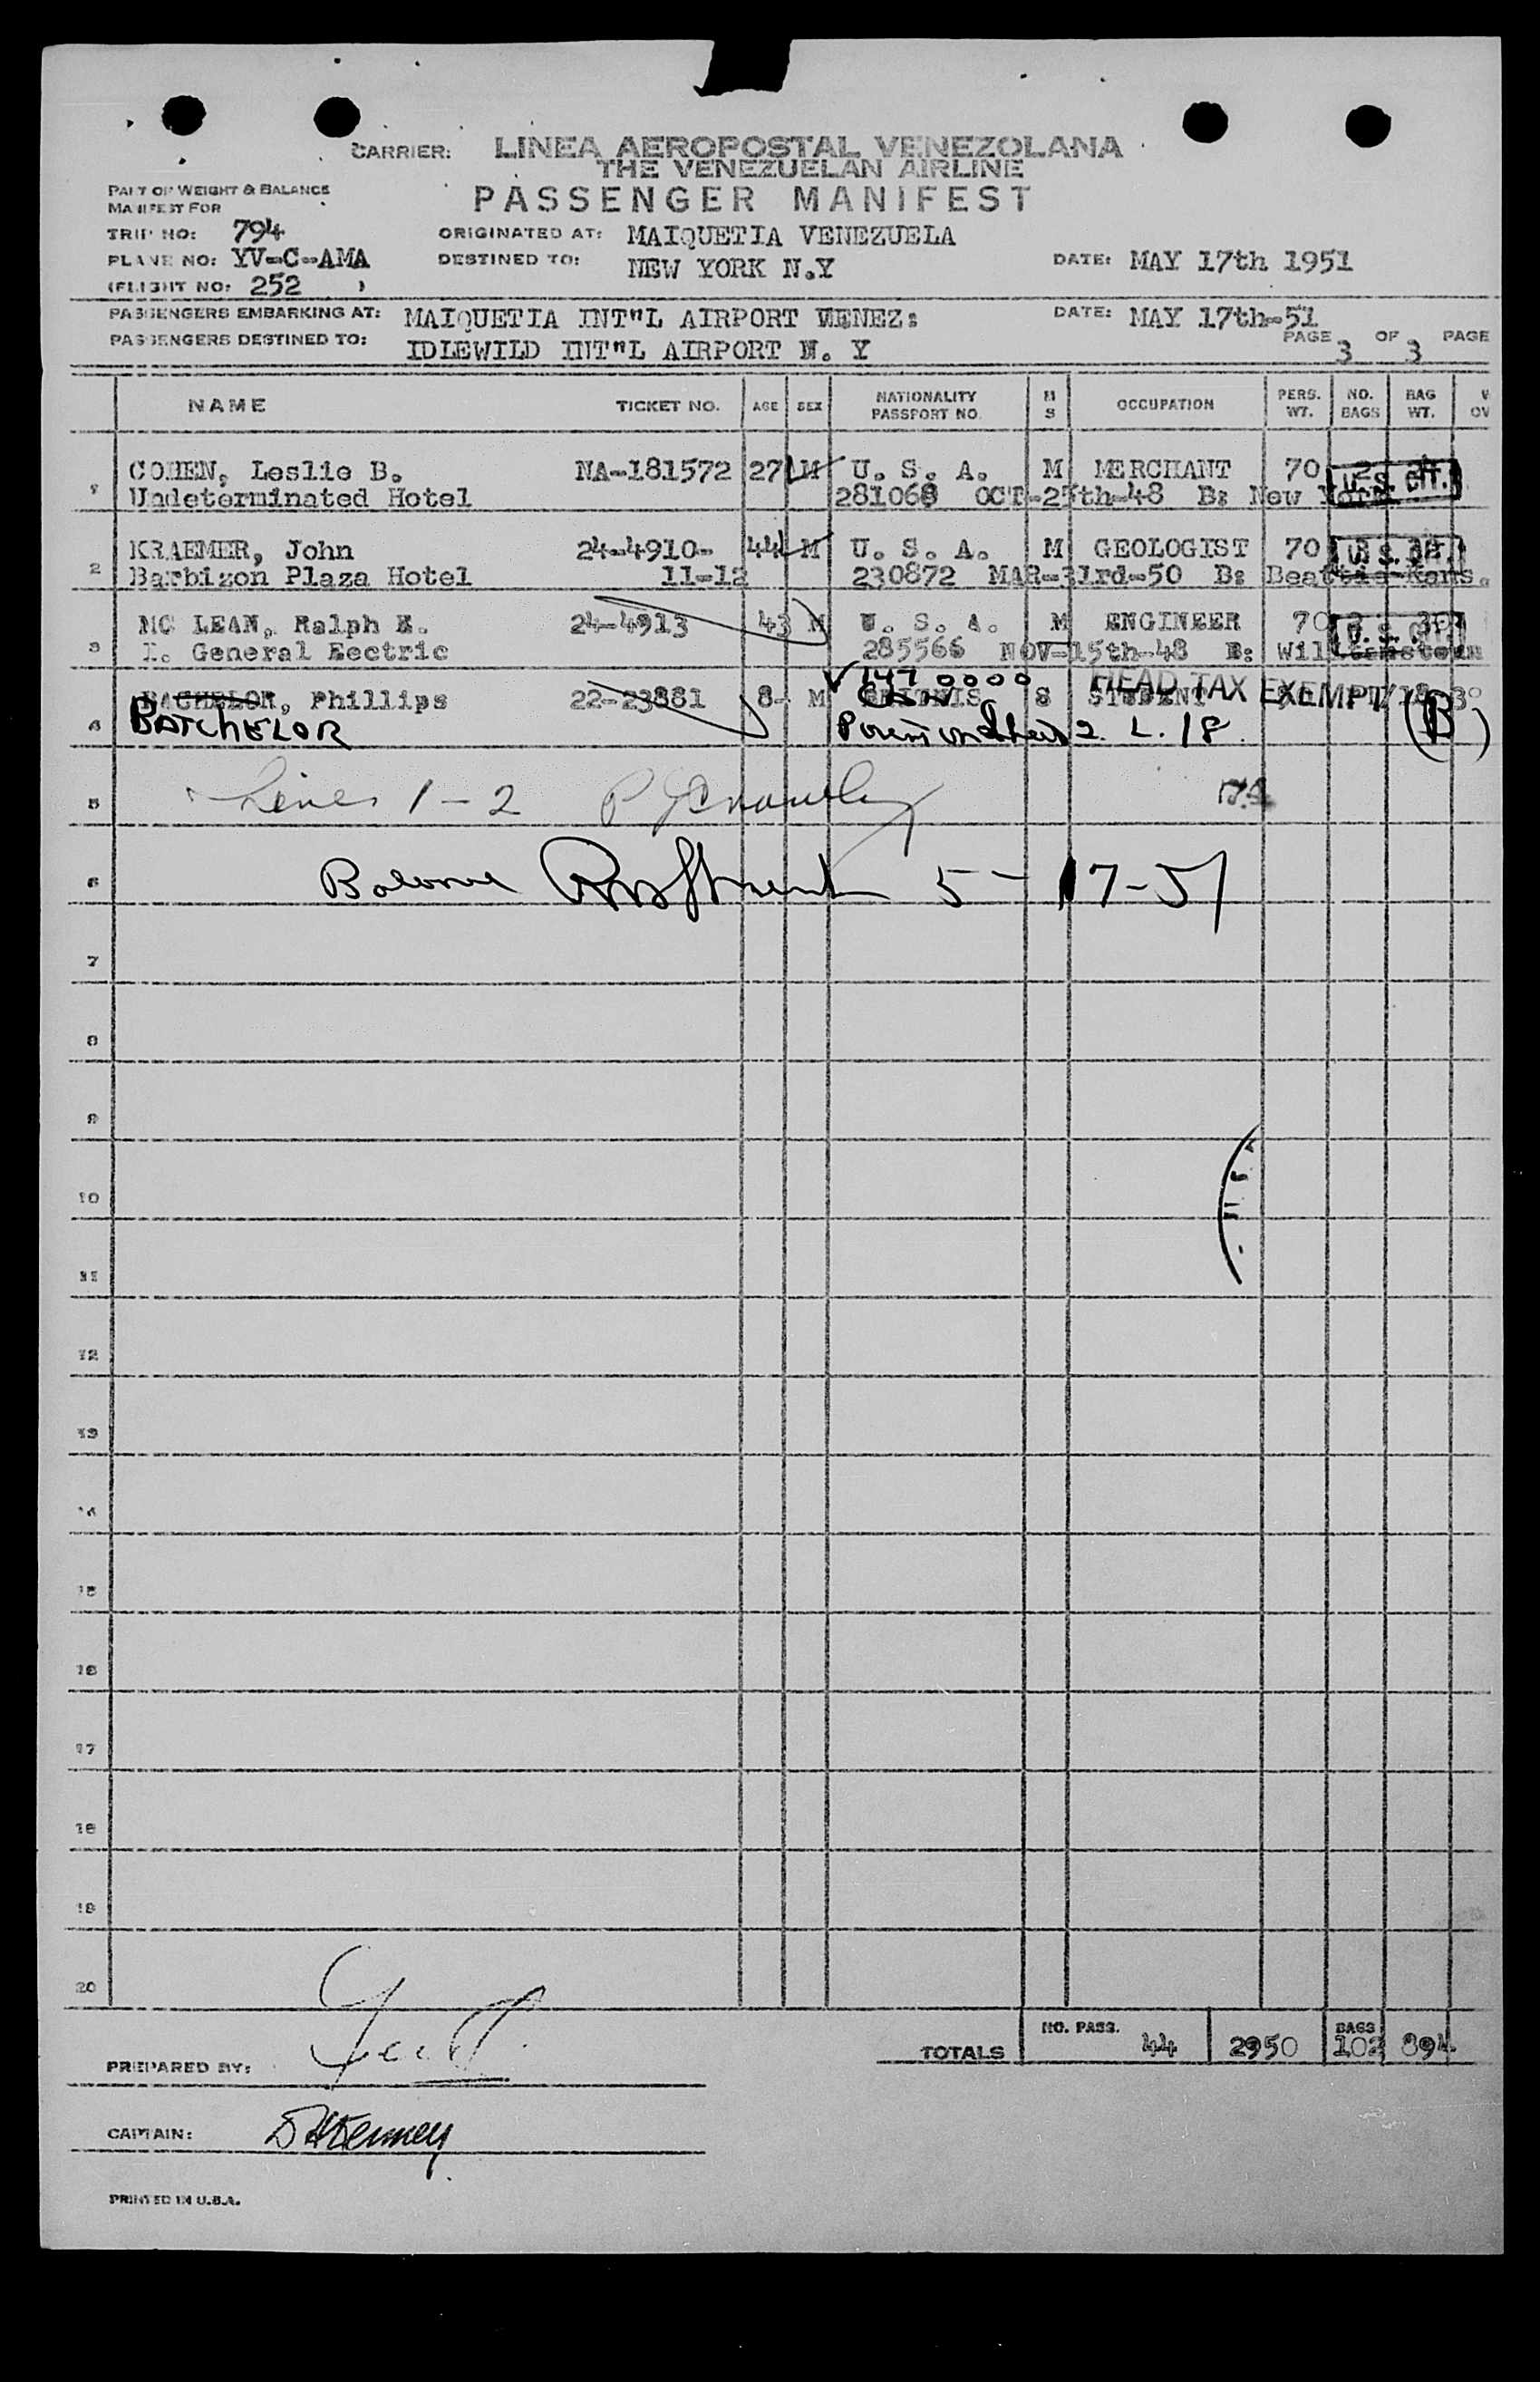 CARRIER: LINEA AEROPOSTAL VENEZOLANA
THE VENEZUELAN AIRLINE
PASSENGER MANIFEST
PART OF WEIGHT & BALANCE
MANIFEST FOR
TRIP NO: 794 ORIGINATED AT: MAIQUETIA VENEZUELA
PLANE NO: YV-C-AMA DESTINED TO: NEW YORK N.Y DATE: MAY 17th 1951
(FLIGHT NO: 252 )
PASSENGERS EMBARKING AT: MAIQUETIA INT"L AIRPORT VENEZ: DATE: MAY 17th-51
PASSENGERS DESTINED TO: IDLEWILD INT"L AIRPORT N. Y PAGE 3 OF 3 PAGE
NAME TICKET NO. AGE SEX NATIONALITY PASSPORT NO. M S OCCUPATION PERS. WT. NO. BAGS BAG WT.
1 COHEN, Leslie B. NA-181572 27 M U. S. A. M MERCHANT 70 2 U.S. CIT.
Undeterminated Hotel 281068 OCT-25th-48 B: New York
2 KRAEMER, John 24-4910- 44 M U. S. A. M GEOLOGIST 70 U.S. CIT.
Barbizon Plaza Hotel 11-12 230872 MAR-31rd-50 B: Beattie Kans.
3 MC LEAN, Ralph E. 24-4913 43 M U. S. A. M ENGINEER 70 U.S. CIT.
I. General Eectric 285566 NOV-15th-48 B: Williamstown
147 0000 HEAD TAX EXEMPT
4 BACHELOR, Phillips 22-23881 8- M S STUDENT (B)
BATCHELOR 2. L. 18
5 Lines 1-2
6 5-17-51
7
8
9
10
11
12
13
14
15
16
17
18
19
20
TOTALS NO. PASS. 44 2950 BAGS 102 894
PREPARED BY:
CAPTAIN:
PRINTED IN U.S.A.